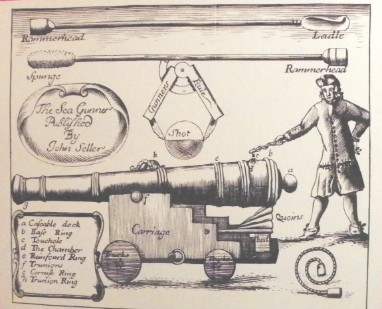 Rammerhead
Ladle
Spunge
Rammerhead
Gunners Rule
The Sea Gunner
Publyshed
By
John Seller
Shot
h
e
c
b
a
f
g
Carriage
Quoins
a Casable deck
b Base Ring
c Touchole
d The Chamber
e Reinforced Ring
f Trunions
g Cornish Ring
h Trunion Ring